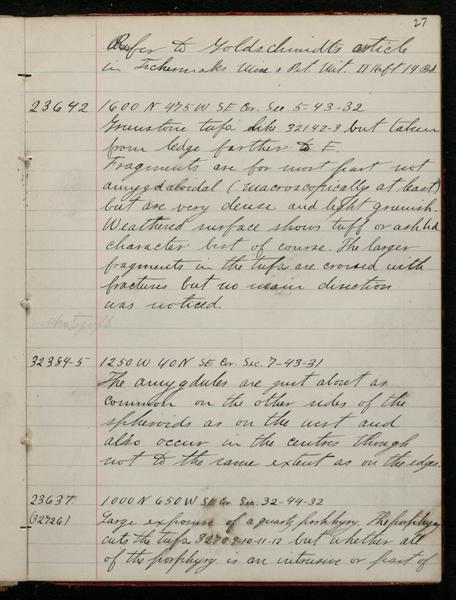 27
Refer to Goldschmidts article
in Tschermaks Min. & Pet. Mit. II Heft 19 Bd.
23642 1600 N 475 W SE Cor. Sec. 5-43-32
Greenstone tufa like 32142-3 but taken
from ledge farther to E.
Fragments are for most part not
amygdaloidal (macroscopically at least)
but are very dense and light greenish.
Weathered surface shows tuff or ash bed
character best of course. The larger
fragments in the tufa are crossed with
fractures but no main direction
was noticed.
32384-5 1250 W 40 N SE Cor. Sec. 7-43-31
The amygdules are just about as
common on the other sides of the
spheroids as on the west and
also occur in the centres though
not to the same extent as on the edges.
23637 1000 N 650 W SE Cor Sec. 32-44-32
(32726) Large exposure of a quartz porphyry. The porphyry
cuts the tufa 32709-10-11-12 but whether all
of the porphyry is an intrusive or part of